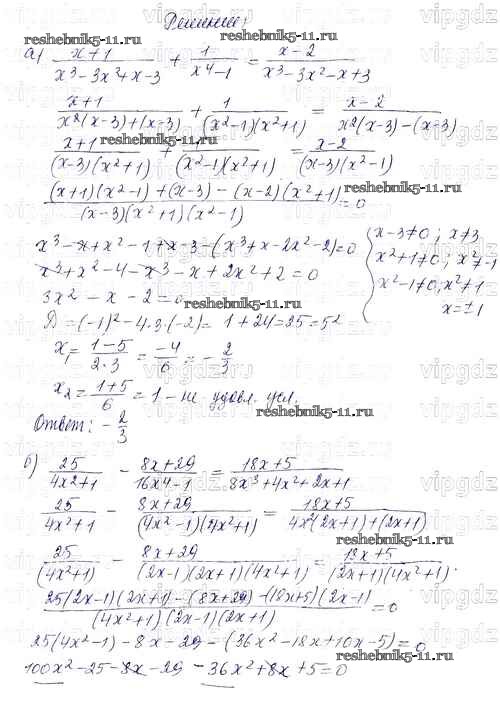 Решение:
reshebnik5-11.ru
а) (x+1)/(x³-3x²+x-3) + 1/(x⁴-1) = (x-2)/(x³-3x²-x+3)
(x+1)/(x²(x-3)+(x-3)) + 1/((x²-1)(x²+1)) = (x-2)/(x²(x-3)-(x-3))
(x+1)/((x-3)(x²+1)) + 1/((x²-1)(x²+1)) = (x-2)/((x-3)(x²-1))
((x+1)(x²-1)+(x-3)-(x-2)(x²+1))/((x-3)(x²+1)(x²-1)) = 0
x³-x+x²-1+x-3-(x³+x-2x²-2)=0
x-3≠0; x≠3
x²+1≠0; x²≠-1
x²-1≠0, x²≠1
x=±1
x³+x²-4-x³-x+2x²+2=0
3x²-x-2=0
D=(-1)²-4·3·(-2)=1+24=25=5²
x₁=(1-5)/(2·3)=-4/6=-2/3
x₂=(1+5)/6=1-не удовл. усл.
Ответ: -2/3
б) 25/(4x²+1) - (8x+29)/(16x4-1) = (18x+5)/(8x³+4x²+2x+1)
25/(4x²+1) - (8x+29)/((4x²-1)(4x²+1)) = (18x+5)/(4x²(2x+1)+(2x+1))
25/(4x²+1) - (8x+29)/((2x-1)(2x+1)(4x²+1)) = (18x+5)/((2x+1)(4x²+1))
(25(2x-1)(2x+1)-(8x+29)-(18x+5)(2x-1))/((4x²+1)(2x-1)(2x+1)) = 0
25(4x²-1)-8x-29-(36x²-18x+10x-5)=0
100x²-25-8x-29-36x²+8x+5=0